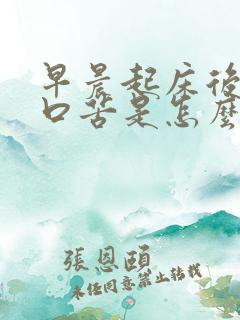 早晨起床後
口苦是怎麼
張恩頤
未经同意禁止转载